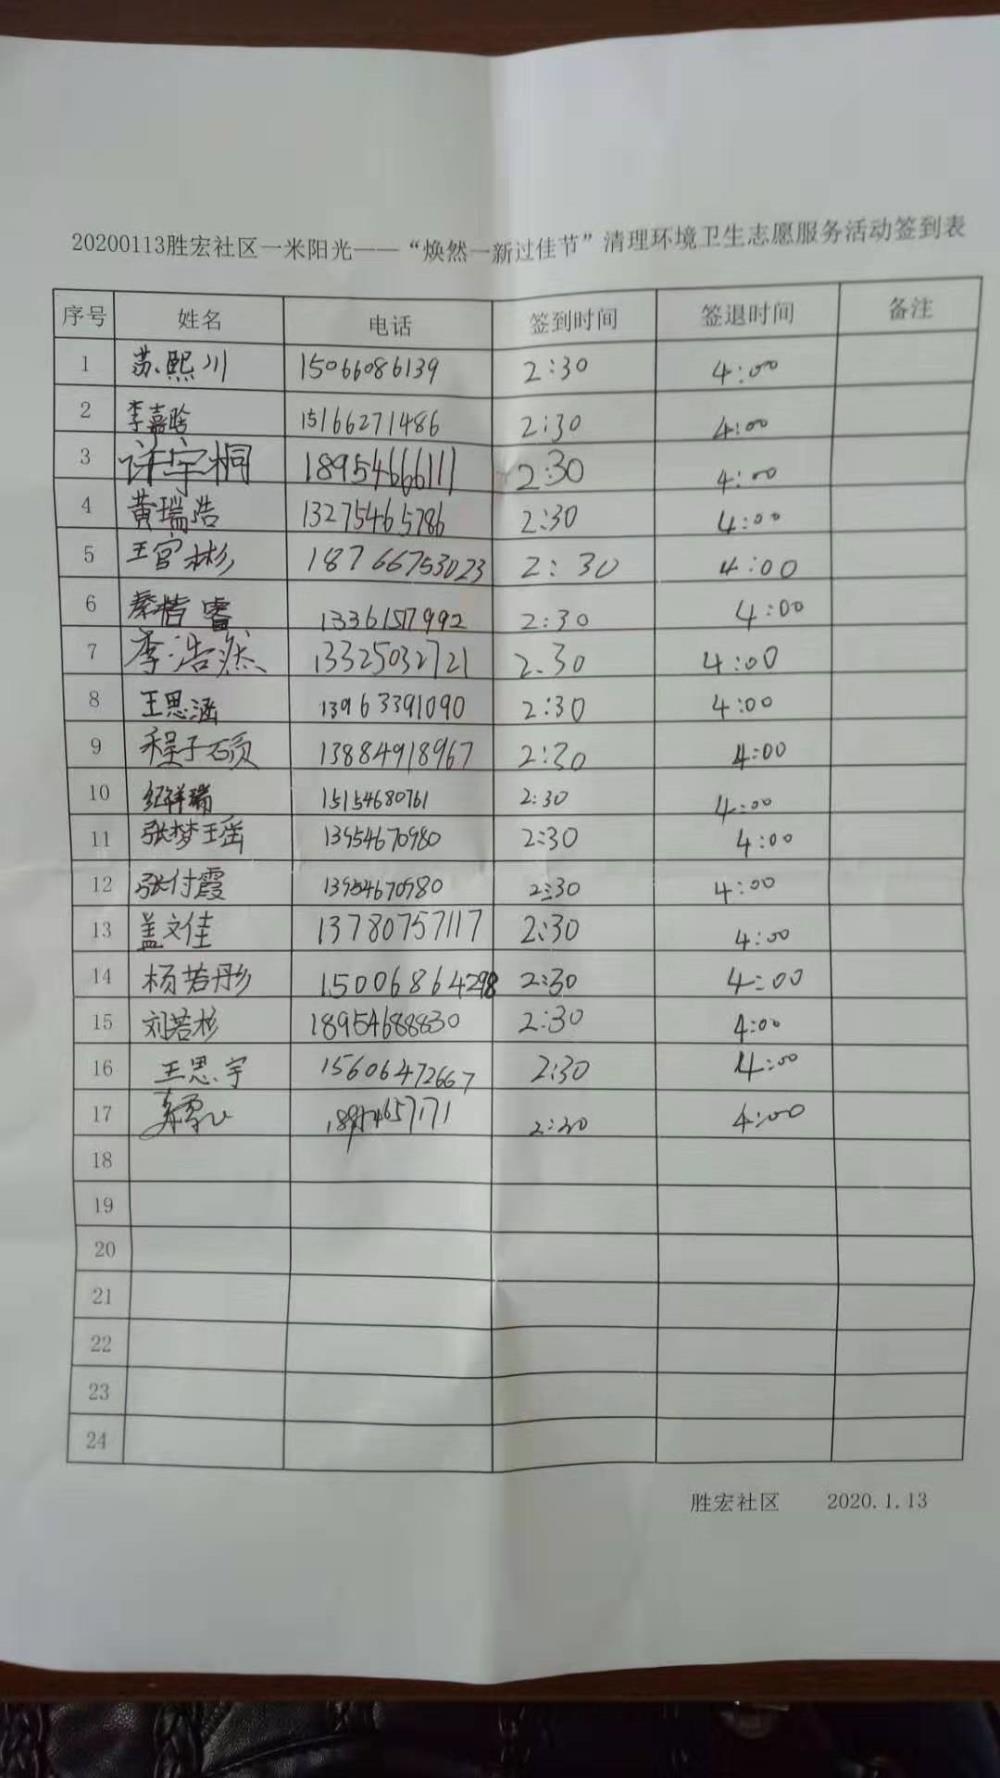 20200113胜宏社区一米阳光——“焕然一新过佳节”清理环境卫生志愿服务活动签到表
序号 姓名 电话 签到时间 签退时间 备注
1 苏熙川 15066086139 2:30 4:00
2 李嘉晗 15166271486 2:30 4:00
3 许宇桐 18954666111 2:30 4:00
4 黄瑞浩 13275465786 2:30 4:00
5 王官彬 18766753023 2:30 4:00
6 秦楷睿 13361517992 2:30 4:00
7 李浩然 13325032721 2:30 4:00
8 王思涵 13963391090 2:30 4:00
9 程子硕 13884918967 2:30 4:00
10 纪祥瑞 15154680761 2:30 4:00
11 张梦瑶 13954670980 2:30 4:00
12 张付霞 13954670980 2:30 4:00
13 盖文佳 13780757117 2:30 4:00
14 杨若彤 15006864298 2:30 4:00
15 刘若杉 18954688830 2:30 4:00
16 王思宇 15606472667 2:30 4:00
17 2:30 4:00
18
19
20
21
22
23
24
胜宏社区 2020.1.13